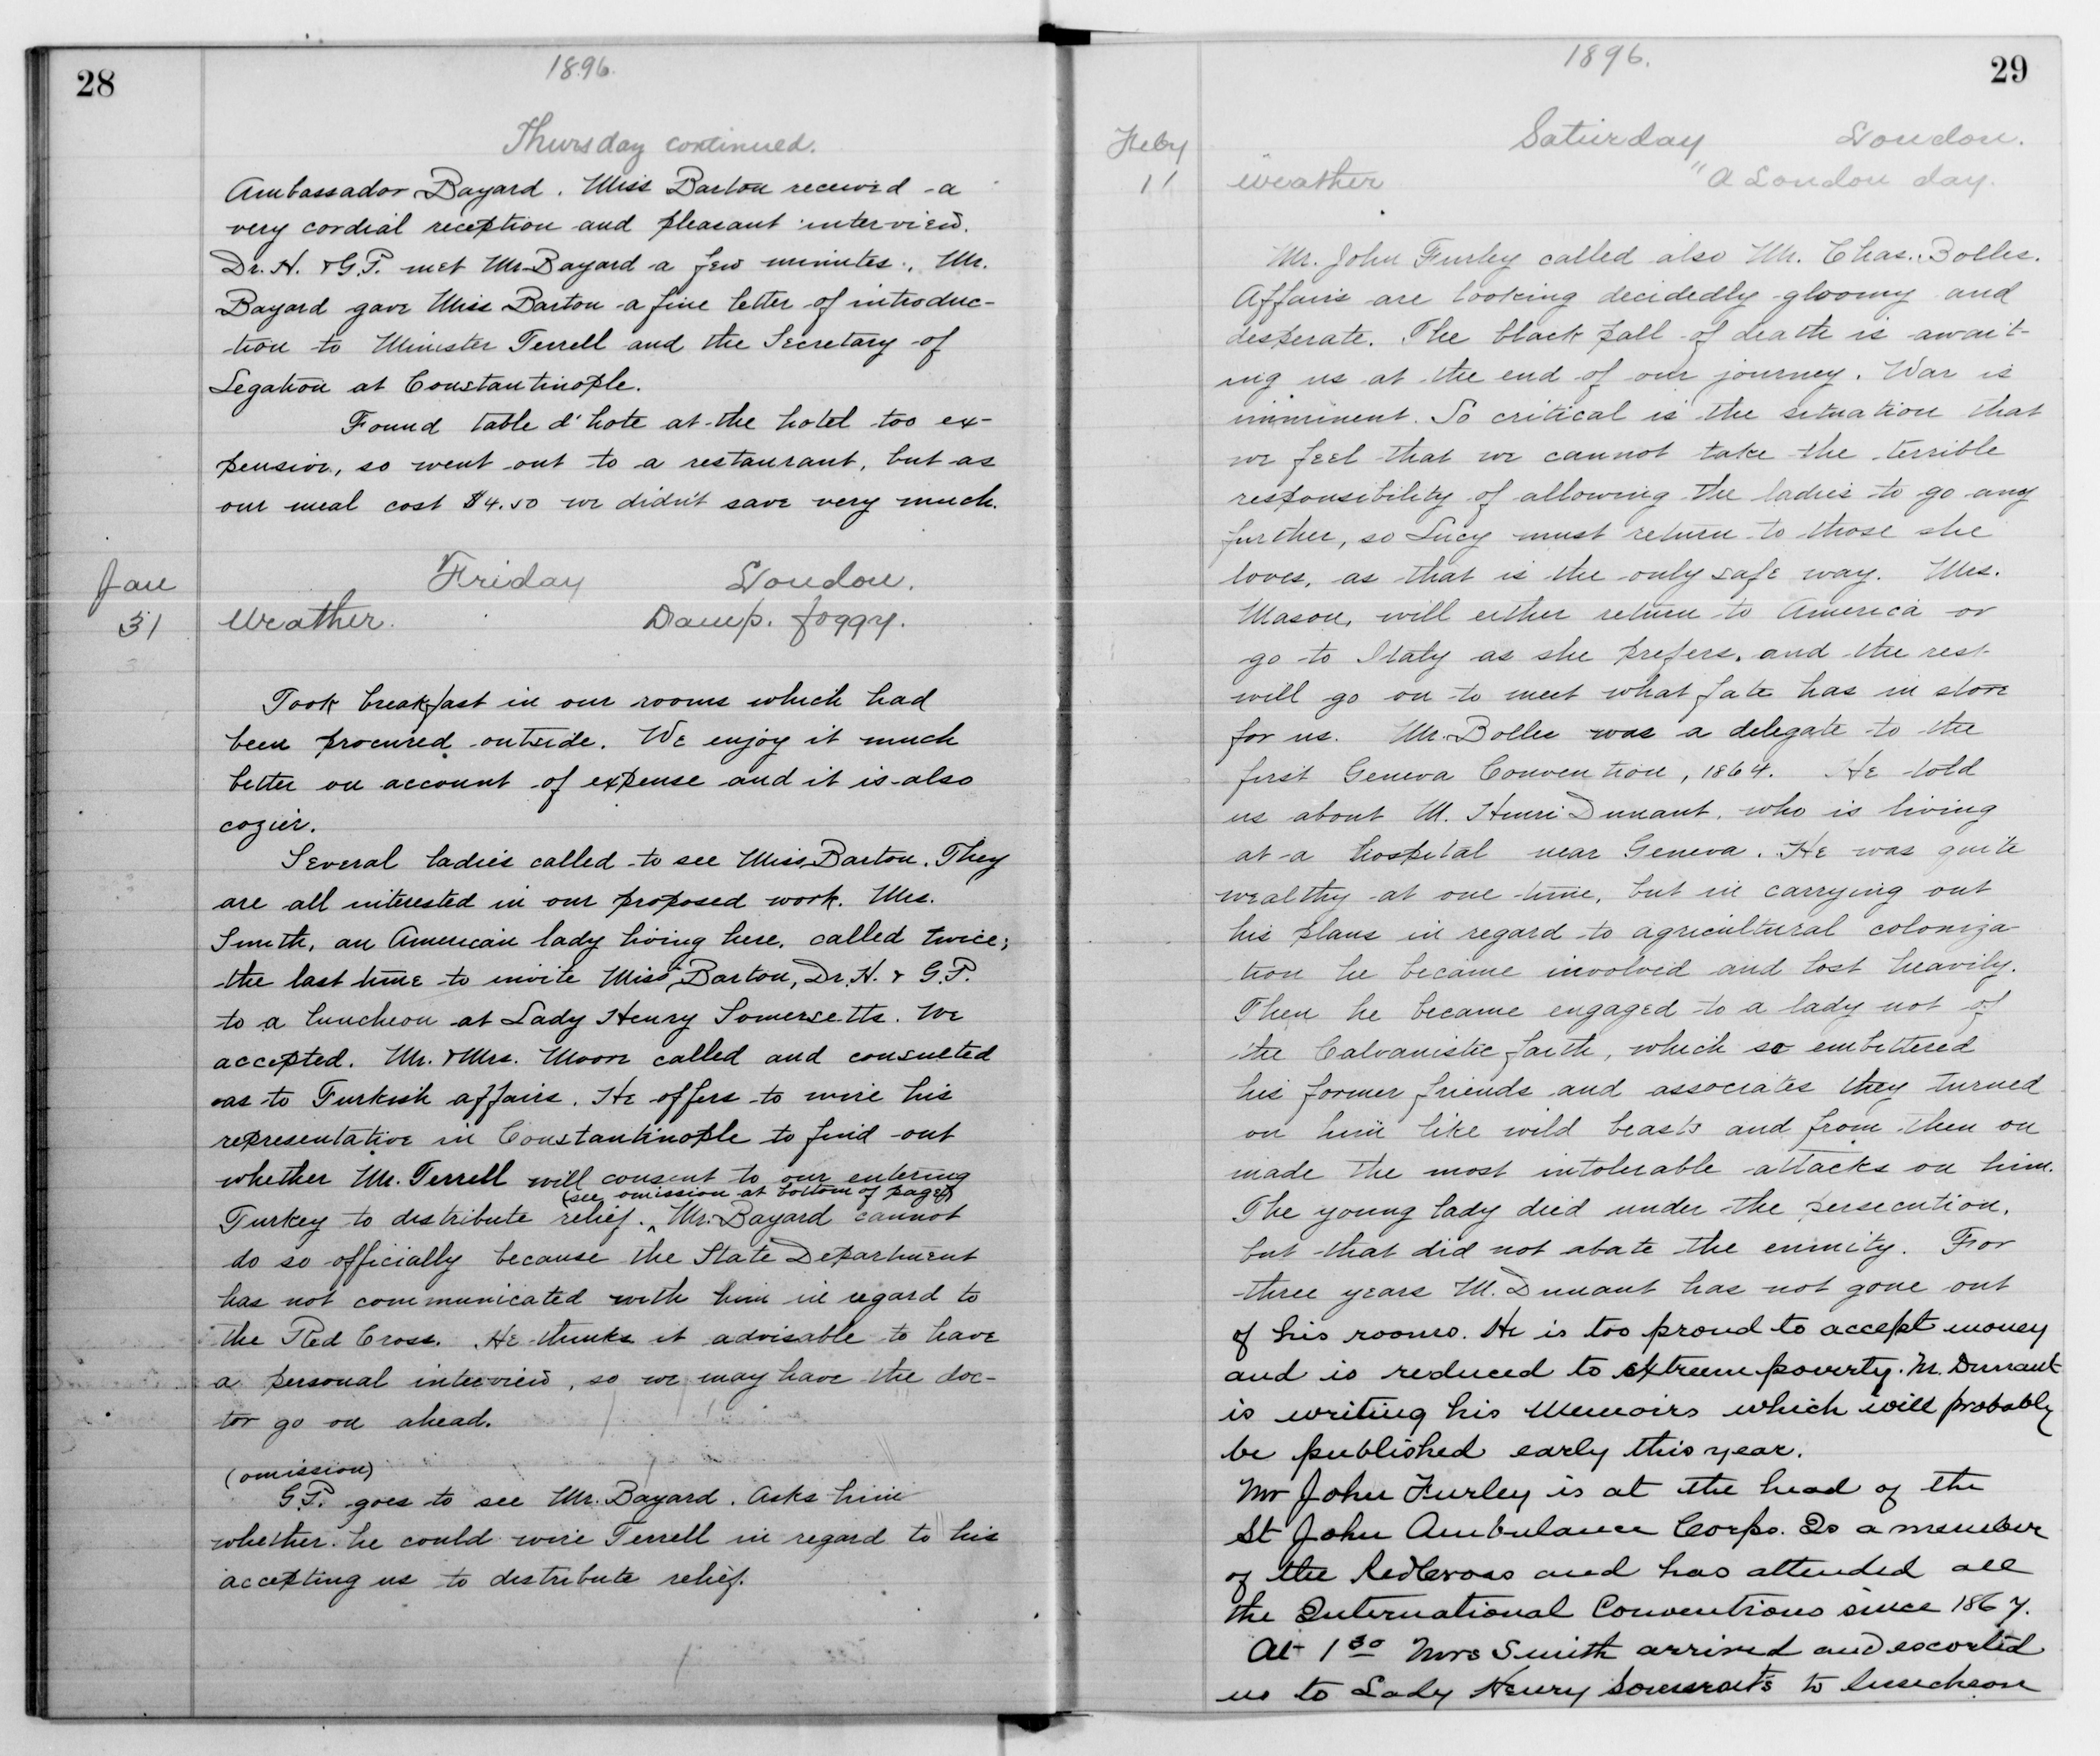 28
1896.
Thursday continued.
Ambassador Bayard. Miss Barton received a
very cordial reception and pleasant interview.
Dr. H. & G.P. met Mr. Bayard a few minutes., Mr.
Bayard gave Miss Barton a fine letter of introduc-
tion to Minister Terrell and the Secretary of
Legation at Constantinople.
Found table d'hote at the hotel too ex-
pensive, so went out to a restaurant, but as
our meal cost $4.50 we didn't save very much.
Jan Friday London.
31 Weather. Damp. foggy.
Took breakfast in our rooms which had
been procured outside. We enjoy it much
better on account of expense and it is also
cozier.
Several ladies called to see Miss Barton. They
are all interested in our proposed work. Mrs.
Smith, an American lady living here, called twice;
the last time to invite Miss Barton, Dr. H. & G.P.
to a luncheon at Lady Henry Somersetts. We
accepted. Mr. & Mrs. Moore called and consulted
as to Turkish affairs. He offers to wire his
representative in Constantinople to find out
whether Mr. Terrell will consent to our entering
(see omission at bottom of page)
Turkey to distribute relief. ^ Mr. Bayard cannot
do so officially because the State Department
has not communicated with him in regard to
the Red Cross. He thinks it advisable to have
a personal interview, so we may have the doc-
tor go on ahead.
(omission)
G.P. goes to see Mr. Bayard. Asks him
whether he could wire Terrell in regard to his
accepting us to distribute relief.
1896.
29
Feby Saturday London.
1 weather "A London day.
Mr. John Furley called also Mr. Chas. Bolles.
Affairs are looking decidedly gloomy and
desperate. The black pall of death is await-
ing us at the end of our journey. War is
imminent. So critical is the situation that
we feel that we cannot take the terrible
responsibility of allowing the ladies to go any
further, so Lucy must return to those she
loves, as that is the only safe way. Mrs.
Mason, will either return to America or
go to Italy as she prefers, and the rest
will go on to meet what fate has in store
for us. Mr. Bolles was a delegate to the
first Geneva Convention, 1864. He told
us about M. Henri Dunant, who is living
at a hospital near Geneva. He was quite
wealthy at one time, but in carrying out
his plans in regard to agricultural coloniza-
tion he became involved and lost heavily.
Then he became engaged to a lady not of
the Calvanistic faith, which so embittered
his former friends and associates they turned
on him like wild beasts and from then on
made the most intolerable attacks on him.
The young lady died under the persecution,
but that did not abate the enmity. For
three years M. Dunant has not gone out
of his rooms. He is too proud to accept money
and is reduced to extreme poverty. M. Dunant
is writing his Memoirs which will probably
be published early this year.
Mr John Furley is at the head of the
St John Ambulance Corps. Is a member
of the Red Cross and has attended all
the International Conventions since 1867.
At 1 30 Mrs Smith arrived and escorted
us to Lady Henry Somersets to luncheon